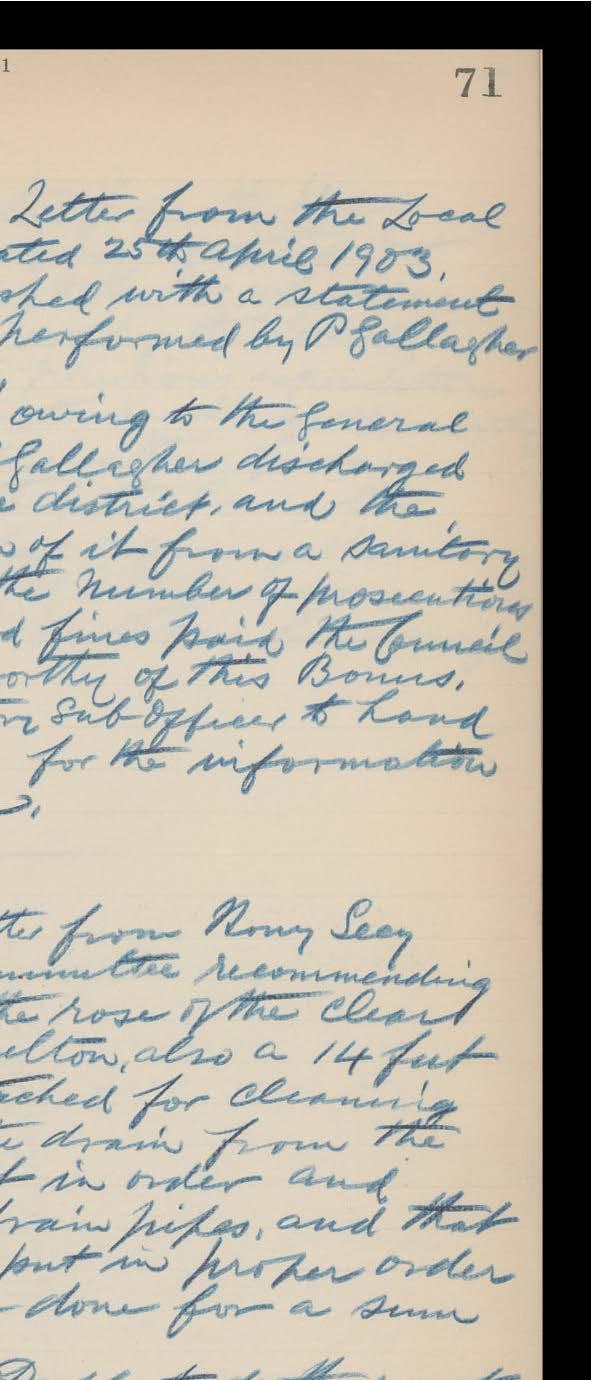 1
71
Letter from the Local
ated 25th April 1903,
shed with a statement
performed by P Gallagher
owing to the General
Gallagher discharged
e district, and the
of it from a sanitory
the Number of prosecutions
d fines paid the Council
orthy of this Bonus.
Sub Officer to hand
for the information
tter from Hony Secy
mmittee recommending
the rose of the clear
elton, also a 14 feet
ached for cleaning
te drain from the
t in order and
rain pipes, and that
put in proper order
done for a sum